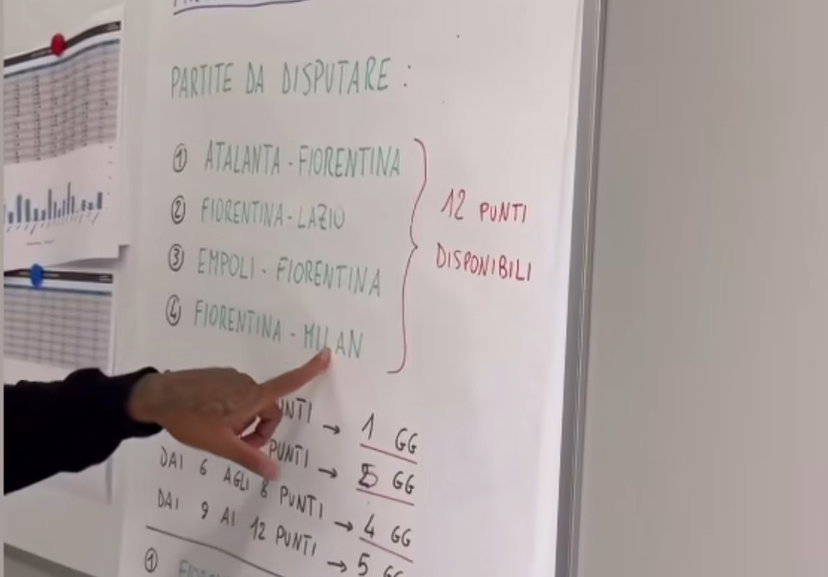 PARTITE DA DISPUTARE :
① ATALANTA - FIORENTINA
② FIORENTINA - LAZIO
③ EMPOLI - FIORENTINA
④ FIORENTINA - MILAN
12 PUNTI
DISPONIBILI
→ 1 GG
PUNTI → GG
DAI 6 AGLI 8 PUNTI → 4 GG
DAI 9 AI 12 PUNTI → 5 GG
①